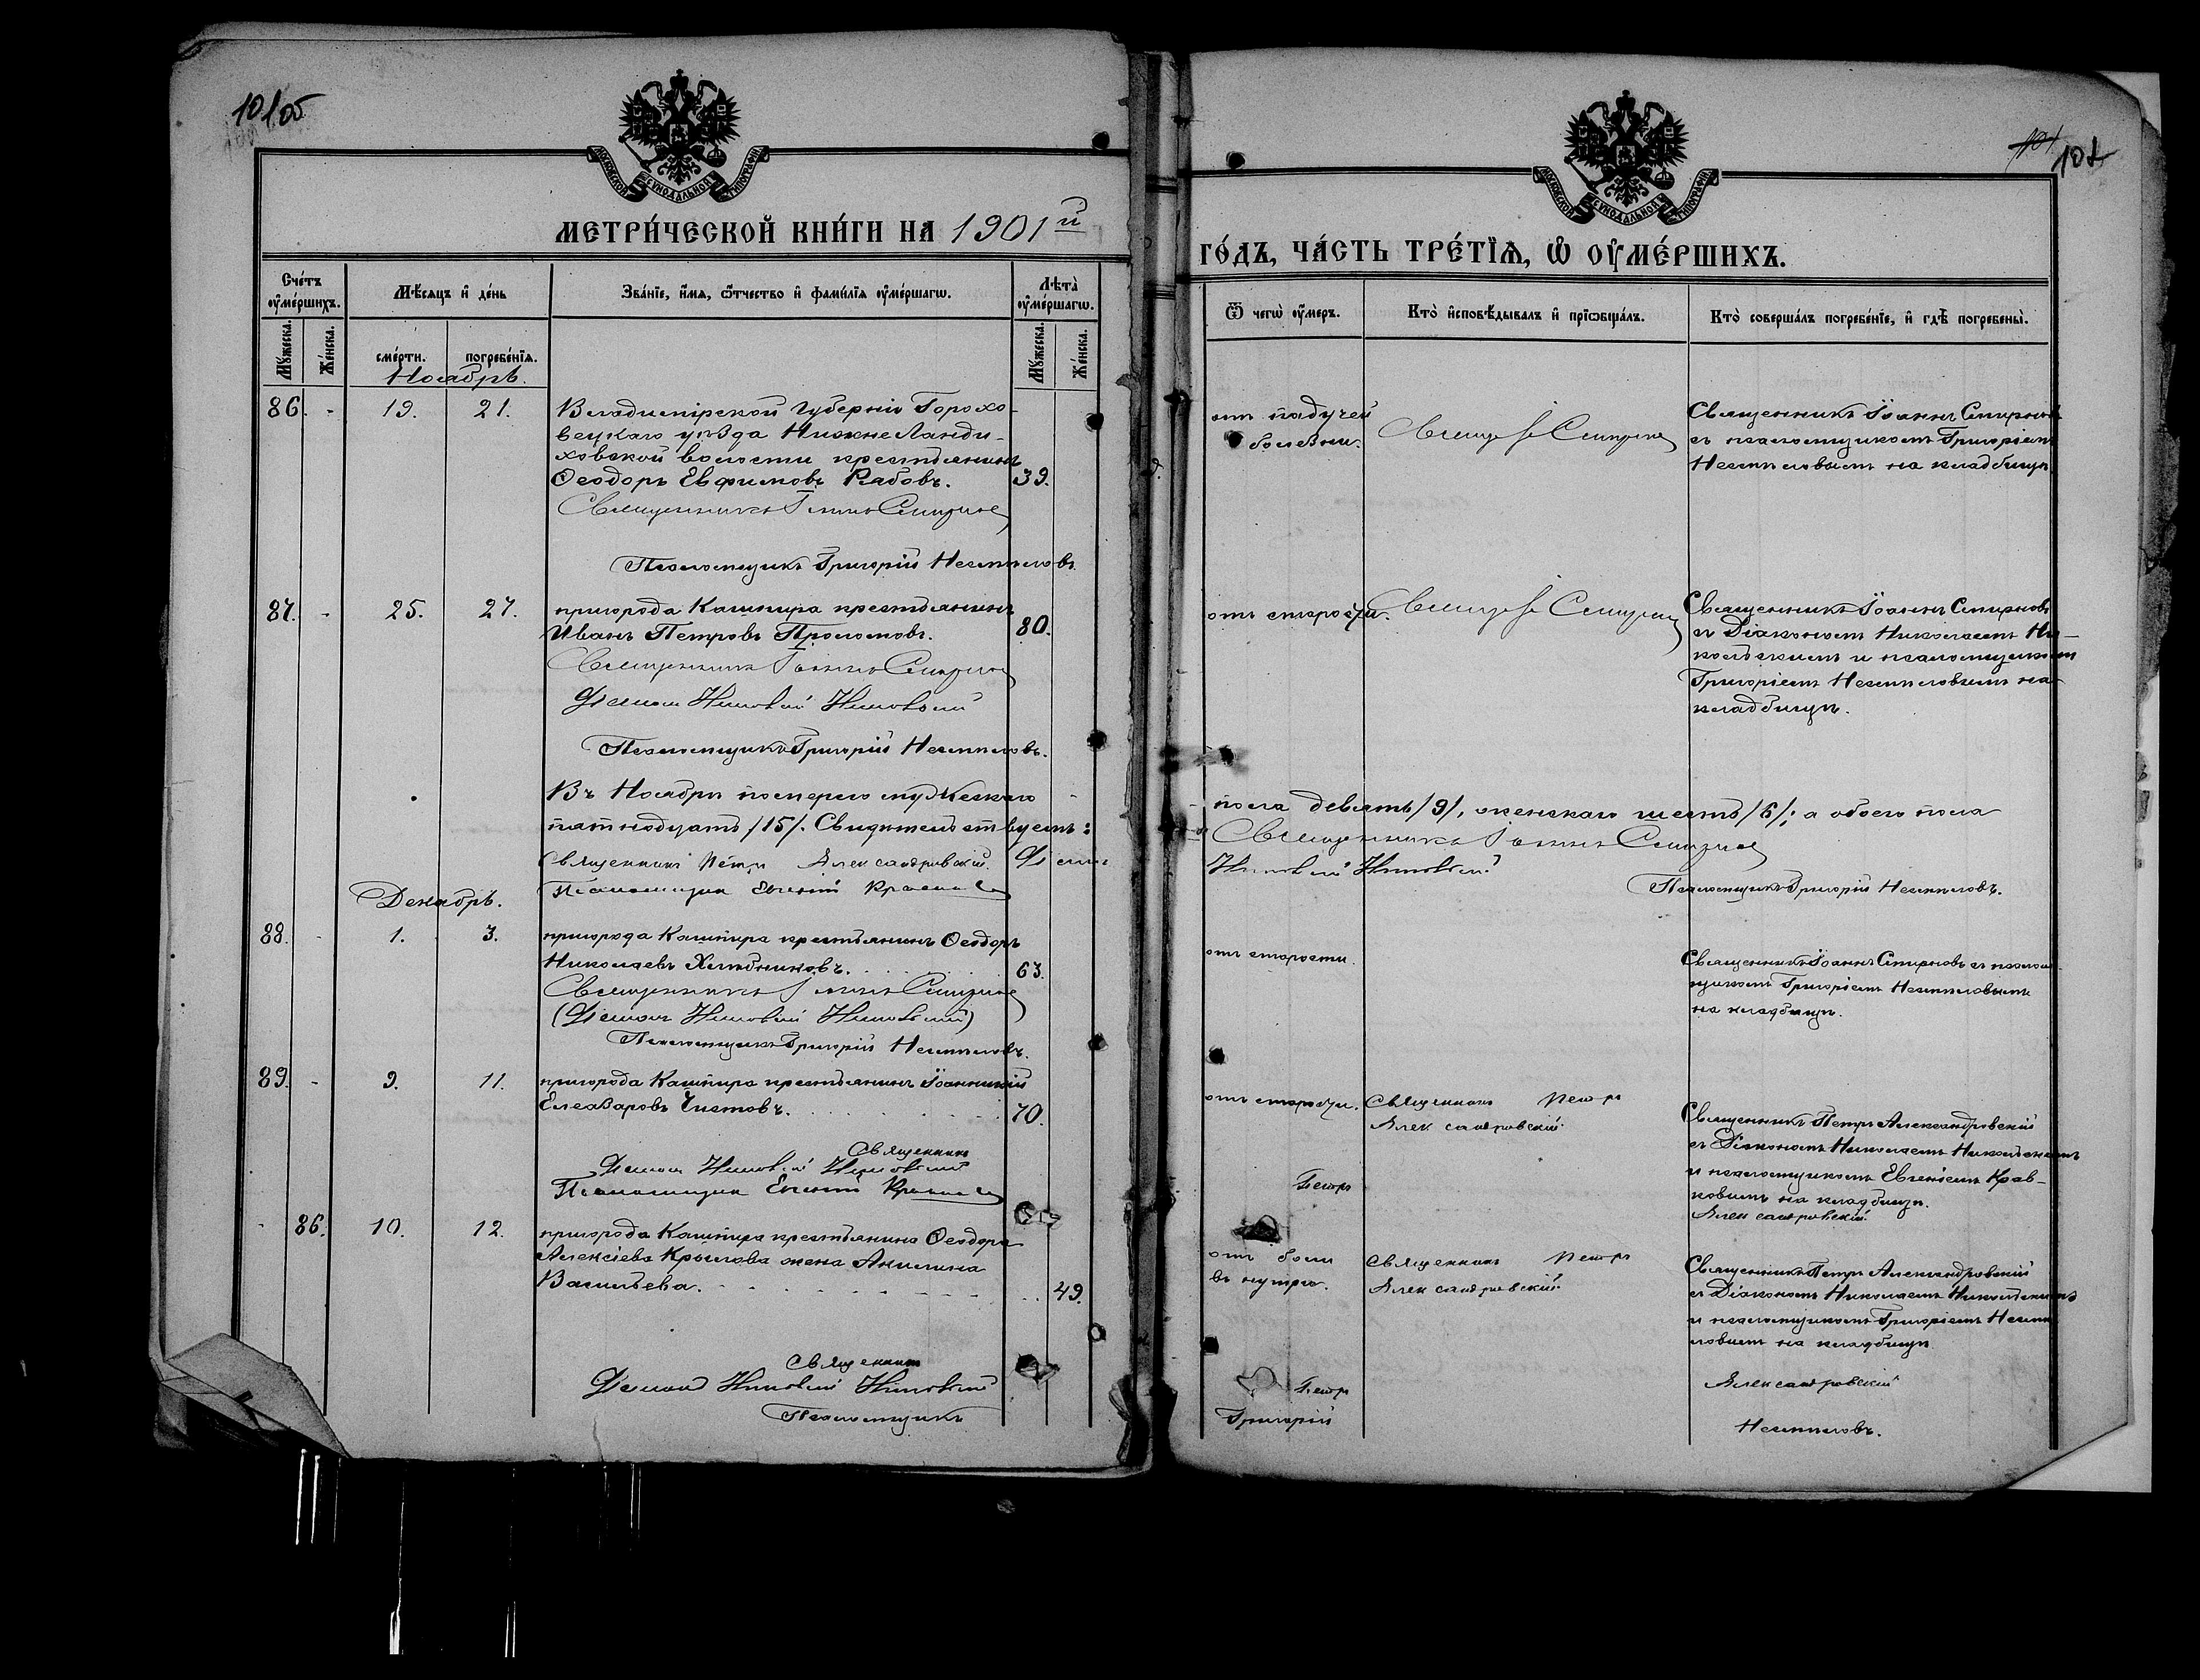 101об
МОСКОВСКОЙ СѴНОДАЛЬНОЙ ТИПОГРАФІИ
МЕТРИ́ЧЕСКОЙ КНИ́ГИ НА 1901й
Сче́тъ ᲂу҆ме́ршихъ.
Мѣ́сяцъ и҆ де́нь
Зва́нїе, и҆́мя, ѻ҆́тчество и҆ фами́лїя ᲂу҆ме́ршагѡ.
Лѣ́та ᲂу҆ме́ршагѡ.
Мꙋ́жеска.
Же́нска.
сме́рти.
погребе́нїя.
Мꙋ́жеска.
Же́нска.
Ноябрь.
86. - 19. 21.
Владимірской губерніи Горохо-
вецкаго уѣзда НижнеЛанди-
ховской волости крестьянинъ
Ѳеодоръ Евфимовъ Рабовъ. 39.
Священникъ Іоаннъ Смирновъ
Псаломщикъ Григорій Несмѣловъ
87. - 25. 27.
пригорода Кашпира крестьянинъ
Иванъ Петровъ Проломовъ. 80.
Священникъ Іоаннъ Смирновъ
Діаконъ Николай Никольскій
Псаломщикъ Григорій Несмѣловъ.
Въ Ноябрѣ померло мужескаго
пятнадцать /15/. Свидѣтельствуемъ:
Священникъ Петръ Александровскій. Діаконъ
Псаломщикъ Евгеній
Декабрь.
88. - 1. 3.
пригорода Кашпира крестьянинъ Ѳеодоръ
Николаевъ Хлѣбниковъ. 63.
Священникъ Іоаннъ Смирновъ
(Діаконъ Николай Никольскій)
Псаломщикъ Григорій Несмѣловъ.
89. - 9. 11.
пригорода Кашпира крестьянинъ Іоанникій
Елеазаровъ Чистовъ. 70.
Священникъ
Діаконъ Николай Никольскій
Псаломщикъ Евгеній
- 86. 10. 12.
пригорода Кашпира крестьянина Ѳеодора
Алексіева Крылова жена Акилина
Васильева. 49.
Священникъ
Діаконъ Николай Никольскій
Псаломщикъ
102
МОСКОВСКОЙ СѴНОДАЛЬНОЙ ТИПОГРАФІИ
ГО́ДЪ, ЧА́СТЬ ТРЕ́ТЇѦ, Ѡ҆ ОУ҆МЕ́РШИХЪ.
Ѿ чегѡ̀ ᲂу҆́меръ.
Кто̀ и҆сповѣ́дывалъ и҆ прїѡбща́лъ.
Кто̀ соверша́лъ погребе́нїе, и҆ гдѣ̀ погребены̀.
отъ падучей
болѣзни.
Священ. І. Смирновъ
Священникъ Іоаннъ Смирновъ
съ псаломщикомъ Григоріемъ
Несмѣловымъ на кладбищѣ
отъ старости.
Священ. І. Смирновъ
Священникъ Іоаннъ Смирновъ
съ Діакономъ Николаемъ Ни-
кольскимъ и псаломщикомъ
Григоріемъ Несмѣловымъ на
кладбищѣ.
пола девять /9/, женскаго шесть /6/; а обоего пола
Священникъ Іоаннъ Смирновъ
Николай Никольскій
Псаломщикъ Григорій Несмѣловъ.
отъ старости.
Священникъ Іоаннъ Смирновъ съ псалом-
щикомъ Григоріемъ Несмѣловымъ
на кладбищѣ.
отъ старости.
Священникъ Петръ
Александровскій.
Священникъ Петръ Александровскій
съ Діакономъ Николаемъ Никольскимъ
и псаломщикомъ Евгеніемъ Крав-
ковымъ на кладбищѣ.
Петръ
Александровскій.
отъ боли
въ нутрѣ.
Священникъ Петръ
Александровскій.
Священникъ Петръ Александровскій
съ Діакономъ Николаемъ Никольскимъ
и псаломщикомъ Григоріемъ Несмѣ
ловымъ на кладбищѣ
Петръ
Александровскій
Григорій
Несмѣловъ.